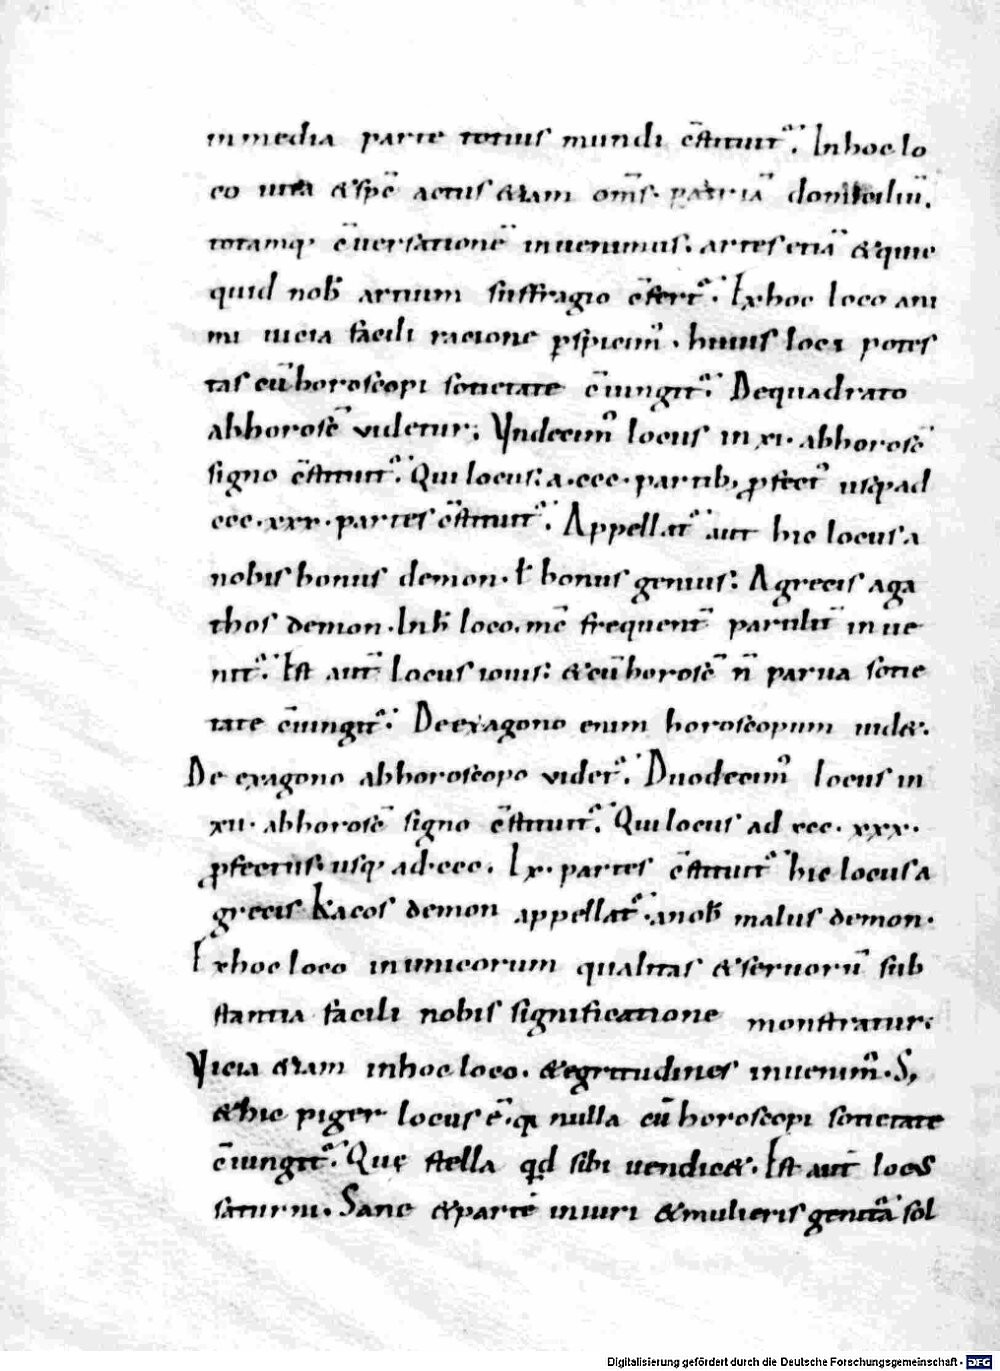 in media parte totius mundi c̄stituit᷑. In hoc lo
co uita &spē actus &iam om̄s. patriā domiciliū.
totamq; c̄uersationē inuenimus. artes etiā &quic
quid nob̄ artium suffragio c̄fert᷑. Ex hoc loco ani
mi uicia facili racione ꝑspicim᷒. huius loci potes
tas cū horoscopi societate c̄iungit᷑. De quadrato
ab horosc̄ videtur; Vndecim᷒ locus in xi. ab horosc̄
signo c̄stituit᷑. Qui locus. a. ccc. partib; ꝓfect᷒ usq; ad
ccc. xxx. partes c̄stituit᷑. Appellat᷑ aut̄ hic locus a
nobis bonus demon. ł bonus genius. A grecis aga
thos demon. In h̄ loco. mc̄ frequent̄ partilit̄ inue
nit᷑. Est aut̄ locus iouis. &cū horosc̄ n̄ parua socie
tate c̄iungit᷑. De exagono enim horoscopum uid&.
De exagono ab horoscopo videt᷑. Duodecim᷒ locus in
xii. ab horosc̄ signo c̄stituit᷑. Qui locus ad ccc. xxx.
ꝓfectus. usq; ad. ccc. Lx. partes c̄stituit᷑ hic locus a
grecis Kacos demon appellat᷑. a nob̄ malus demon.
Ex hoc loco inimicorum qualitas &seruorū sub
stantia facili nobis significatione monstratur.
Vicia &iam in hoc loco. &egritudines inuenim᷒. S;
&hic piger locus ē. q nulla cū horoscopi societate
c̄iungit᷑. Quę stella qd̄ sibi uendic&. Est aut̄ locus
saturni. Sane &partē in uiri &mulieris genitā sol